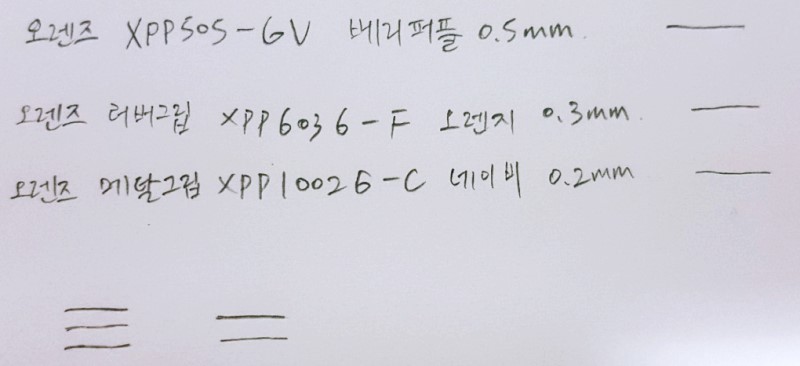 오렌즈 XPP505-GV 베리퍼플 0.5mm
오렌즈 러버그립 XPP6036-F 오렌지 0.3mm
오렌즈 메탈그립 XPP1002G-C 네이비 0.2mm